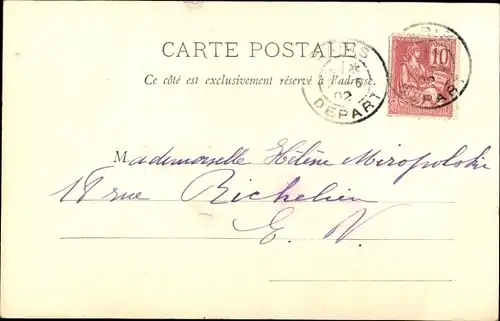 CARTE POSTALE
Ce côté est exclusivement réservé à l'adresse.
DEPART
02
10
Mademoiselle Hélène Miropolski
18 rue Richelieu
E. V.